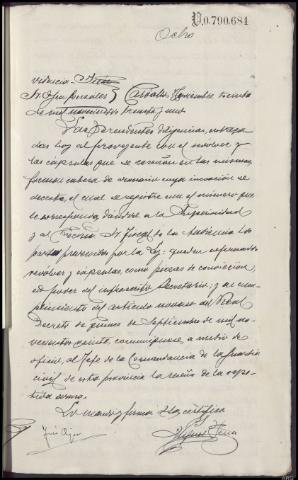 P.0.790.684
Ocho
videncia.
Sr. Juez González } Castelló Noviembre treinta
de mil novecientos treinta y uno
Las precedentes diligencias, entrega
das hoy al proveyente con el revolver y
las cápsulas que se reseñan en las mismas
formen cabeza de sumario cuya incoación se
decreta, el cual se registre con el número que
le corresponda, dándose a la Superioridad
y al Sr. Fiscal de la Audiencia los
partes prevenidos por la Ley: queden reseñados
revolver y cápsulas como piezas de convicción
en poder del infrascrito Secretario; y al cum-
plimiento del artículo noveno del Real
Decreto de quince de Septiembre de mil no-
vecientos veinte, comuníquese, a medio de
oficio, al Jefe de la Comandancia de la Guardia
civil de esta provincia la reseña de la repe-
tida arma.
Lo manda y firma S.S. certifico